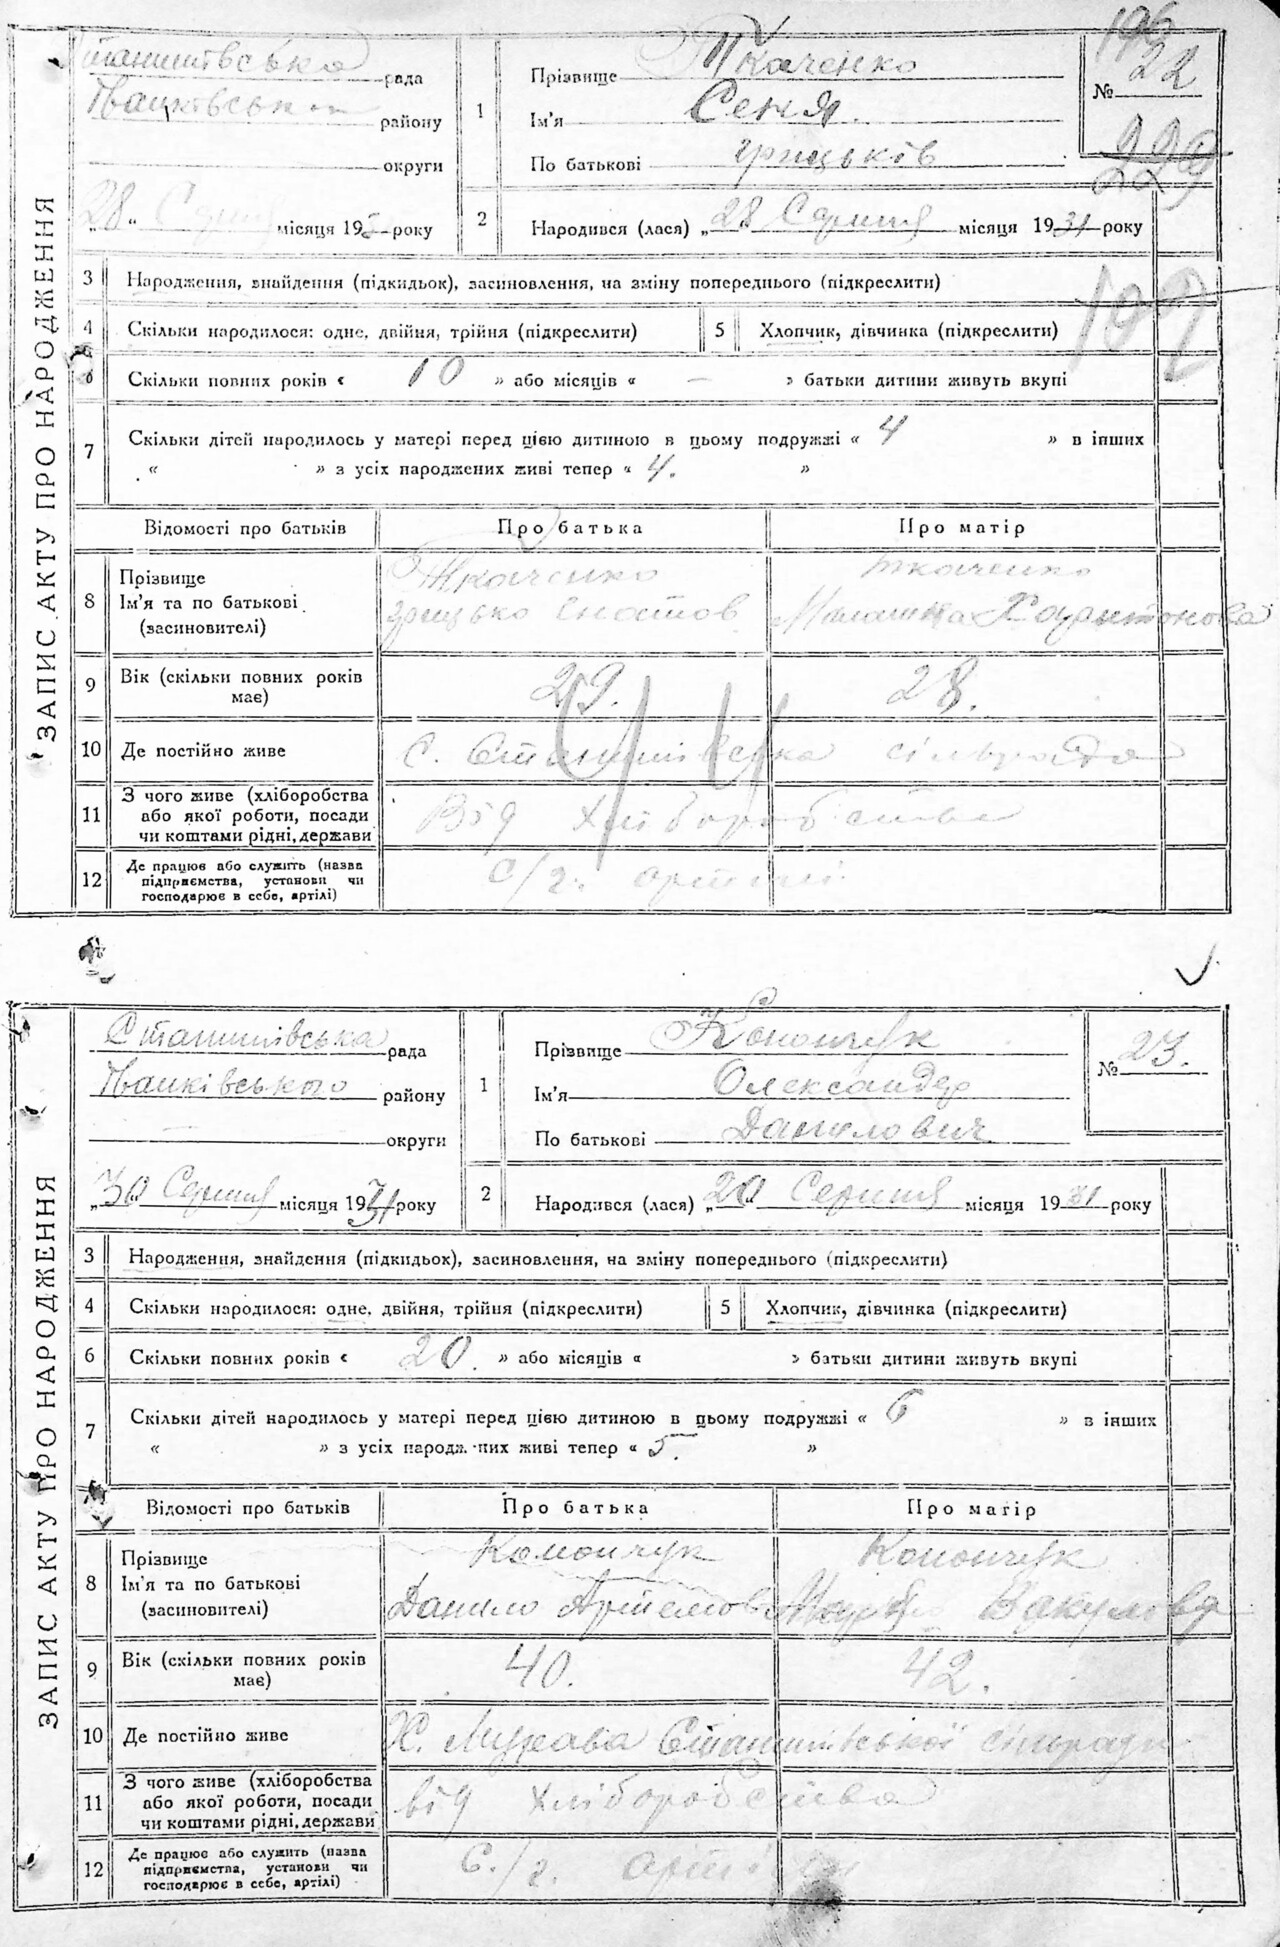 196
Станишівська рада
Пашківськ району
округи
„28“ Серпня місяця 193 року
1
Прізвище Ткаченко
Ім'я Сеня.
По батькові грицьків
№ 22
229
2
Народився (лася) „28 Серпня місяця 1931 року
ЗАПИС АКТУ ПРО НАРОДЖЕННЯ
3 Народження, знайдення (підкидьок), засиновлення, на зміну попереднього (підкреслити)
197
4 Скільки народилося: одне, двійня, трійня (підкреслити) 5 Хлопчик, дівчинка (підкреслити)
6 Скільки повних років « 10 » або місяців « — » батьки дитини живуть вкупі
7 Скільки дітей народилось у матері перед цією дитиною в цьому подружжі « 4 » в інших
« » з усіх народжених живі тепер « 4. »
Відомості про батьків Про батька Про матір
8 Прізвище Ткаченко Ткаченко
Ім'я та по батькові грицько Гнатов Харитонова
(засиновителі)
9 Вік (скільки повних років 29. 28.
має)
10 Де постійно живе С. Станишівська сільрада
11 З чого живе (хліборобства
або якої роботи, посади Від хліборобства
чи коштами рідні, держави
12 Де працює або служить (назва
підприємства, установи чи С/г. артілі
господарює в себе, артілі)
Станишівська рада
Пашківського району
округи
„30 Серпня місяця 1931 року
1
Прізвище Конончук
Ім'я Олександер
По батькові Данилович
№ 23.
2
Народився (лася) „20 Серпня місяця 1931 року
ЗАПИС АКТУ ПРО НАРОДЖЕННЯ
3 Народження, знайдення (підкидьох), засиновлення, на зміну попереднього (підкреслити)
4 Скільки народилося: одне, двійня, трійня (підкреслити) 5 Хлопчик, дівчинка (підкреслити)
6 Скільки повних років « 20. » або місяців « » батьки дитини живуть вкупі
7 Скільки дітей народилось у матері перед цією дитиною в цьому подружжі « 6 » в інших
« » з усіх народжених живі тепер « 5. »
Відомості про батьків Про батька Про матір
8 Прізвище Конончук Конончук
Ім'я та по батькові Данило Артемов Вакулова
(засиновителі)
9 Вік (скільки повних років 40. 42.
має)
10 Де постійно живе Х. Станишівської сільради
11 З чого живе (хліборобства
або якої роботи, посади від хліборобства
чи коштами рідні, держави
12 Де працює або служить (назва
підприємства, установи чи С./г. артілі
господарює в себе, артілі)